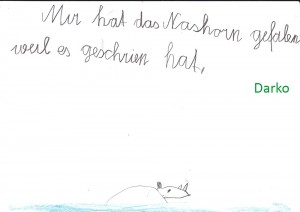 Mir hat das Nashorn gefalen
weil es geschrien hat,
Darko